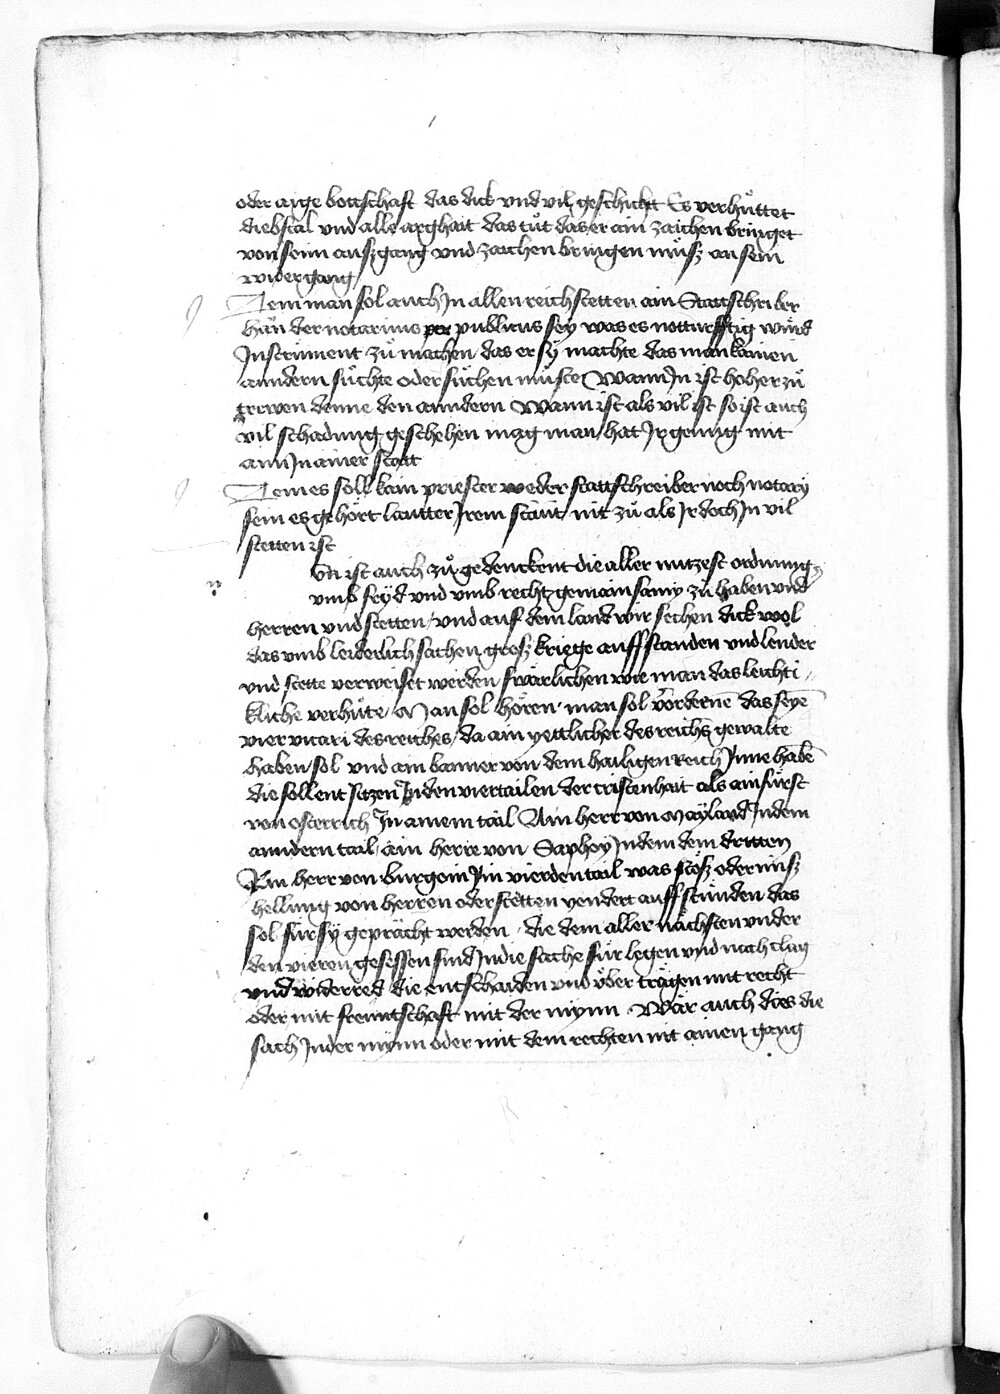 oder arge bottschaft das dick vnd vil geschicht Es verhüttet
diebstal vnd alle arghait das tůt das er ain zaichen bringet
von seim auszgang vnd zaichen bringen můsz an sein
widergang
Item man sol auch Jn allen reichstetten ain Stattschriber
han der notarius publicus sey was es notturfftig würd
Jnstrument zů machen das er sy machte das man kainen
anndern sůchte oder sůchen můste Wann Jn ist hoher zů
trewen denne den anndern Wann ist als vil ist so ist auch
vil schadung geschehen mag man hat Jr genůg mit
aim Jn ainer statt
Item es soll kain priester weder stattschreiber noch notary
sein es gehört lautter Jrem staut nit zů als Jr doch Jn vil
stetten ist
Un ist auch zů gedenckent die aller nutzest ordnung
vmb fryd vnd vmb recht gemainsamy zů haben vnd
herren vnd stetten vnd auf dem land wir sechen dick wol
das vmb leiderlich sachen grosz kriege auffstanden vnd lender
vnd stette verweiset werden swärlichen wie man das leichti
kliche verhüte Man sol hören man sol vordernē das seyē
vier vicari des reiches da ain yettlicher des reichs gewalte
haben sol vnd ain banner von dem hailigen Reich Jnne habē
die sollent sitzen Jn den viertailen der cristenhait als ain fürst
von osterrich Jn ainem tail Ain herr von Mayland Jn dem
anndern tail ain herre von Saphoy Jn dem dem dritten
Ain herr von burgoin Jm vierden tail was stösz oder misz
hellung von herren oder stetten yendert auffstünden das
sol für sy gepracht werden die dem aller nächsten vnder
den vieren gesessen sind Jn die sache für legen vnd nach clag
vnd widerred die entschaiden vnd über trägen mit recht
oder mit freuntschaft mit der mynn Wär auch das die
sach Jn der mynn oder mit dem rechten nit ainen gang